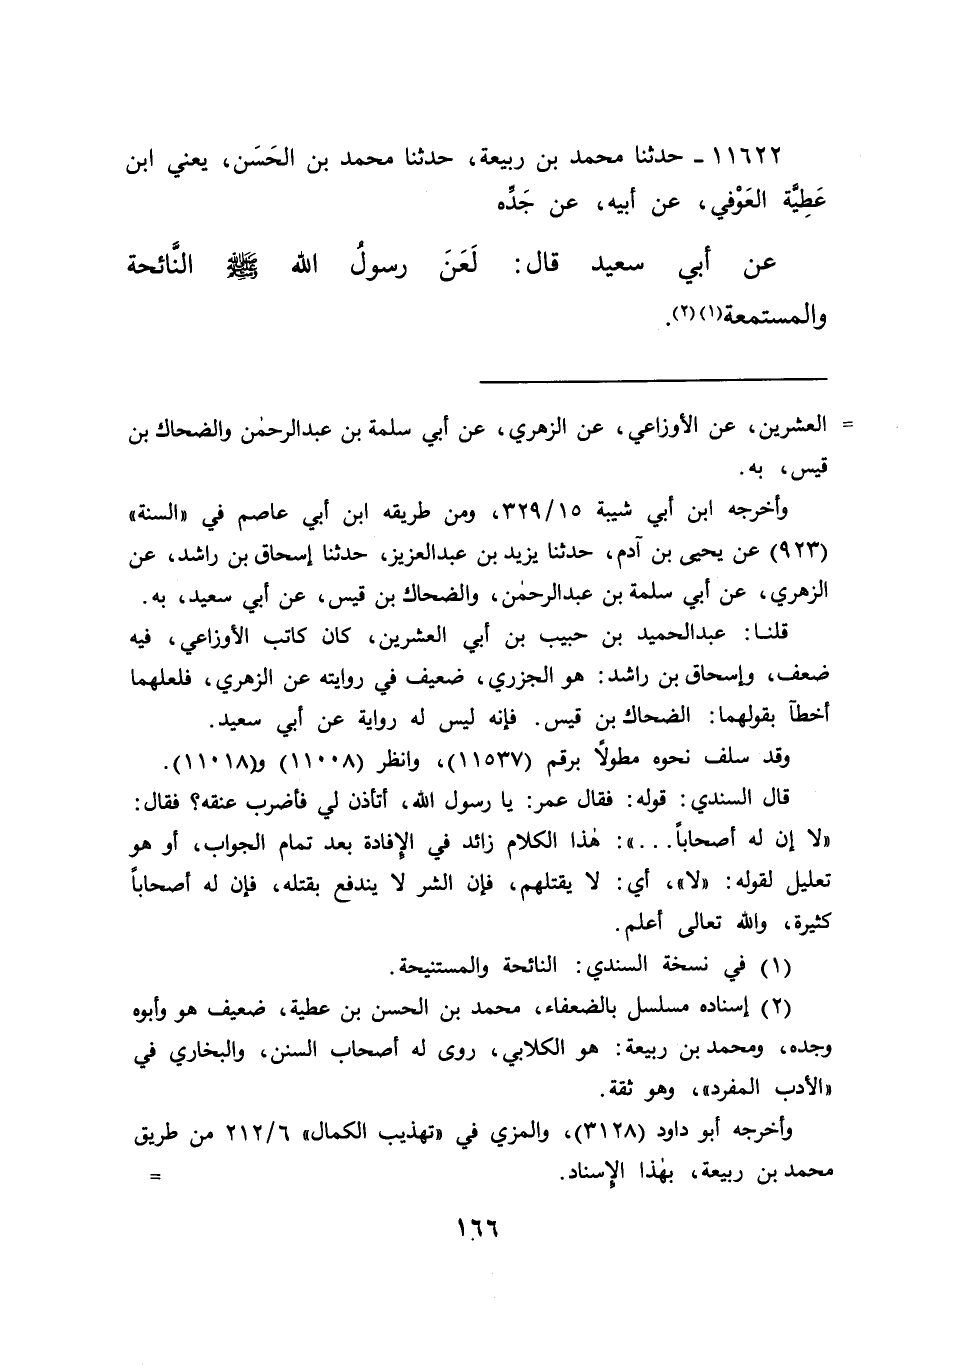 ١١٦٢٢ - حدثنا محمد بن ربيعة، حدثنا محمد بن الحَسَن، يعني ابن
عَطِيَّة العَوْفي، عن أبيه، عن جَدِّه
عن أبي سعيد قال: لَعَنَ رسولُ الله ﷺ النَّائحة
والمستمعة(١)(٢).
= العشرين، عن الأوزاعي، عن الزهري، عن أبي سلمة بن عبدالرحمٰن والضحاك بن
قيس، به.
وأخرجه ابن أبي شيبة ٣٢٩/١٥، ومن طريقه ابن أبي عاصم في «السنة»
(٩٢٣) عن يحيى بن آدم، حدثنا يزيد بن عبدالعزيز، حدثنا إسحاق بن راشد، عن
الزهري، عن أبي سلمة بن عبدالرحمٰن، والضحاك بن قيس، عن أبي سعيد، به.
قلنا: عبدالحميد بن حبيب بن أبي العشرين، كان كاتب الأوزاعي، فيه
ضعف، وإسحاق بن راشد: هو الجزري، ضعيف في روايته عن الزهري، فلعلهما
أخطآ بقولهما: الضحاك بن قيس. فإنه ليس له رواية عن أبي سعيد.
وقد سلف نحوه مطولًا برقم (١١٥٣٧)، وانظر (١١٠٠٨) و(١١٠١٨).
قال السندي: قوله: فقال عمر: يا رسول الله، أتأذن لي فأضرب عنقه؟ فقال:
«لا إن له أصحاباً...»: هٰذا الكلام زائد في الإفادة بعد تمام الجواب، أو هو
تعليل لقوله: «لا»، أي: لا يقتلهم، فإن الشر لا يندفع بقتله، فإن له أصحاباً
كثيرة، والله تعالى أعلم.
(١) في نسخة السندي: النائحة والمستنيحة.
(٢) إسناده مسلسل بالضعفاء، محمد بن الحسن بن عطية، ضعيف هو وأبوه
وجده، ومحمد بن ربيعة: هو الكلابي، روى له أصحاب السنن، والبخاري في
«الأدب المفرد»، وهو ثقة.
وأخرجه أبو داود (٣١٢٨)، والمزي في «تهذيب الكمال» ٢١٢/٦ من طريق
محمد بن ربيعة، بهٰذا الإسناد. =
١٦٦